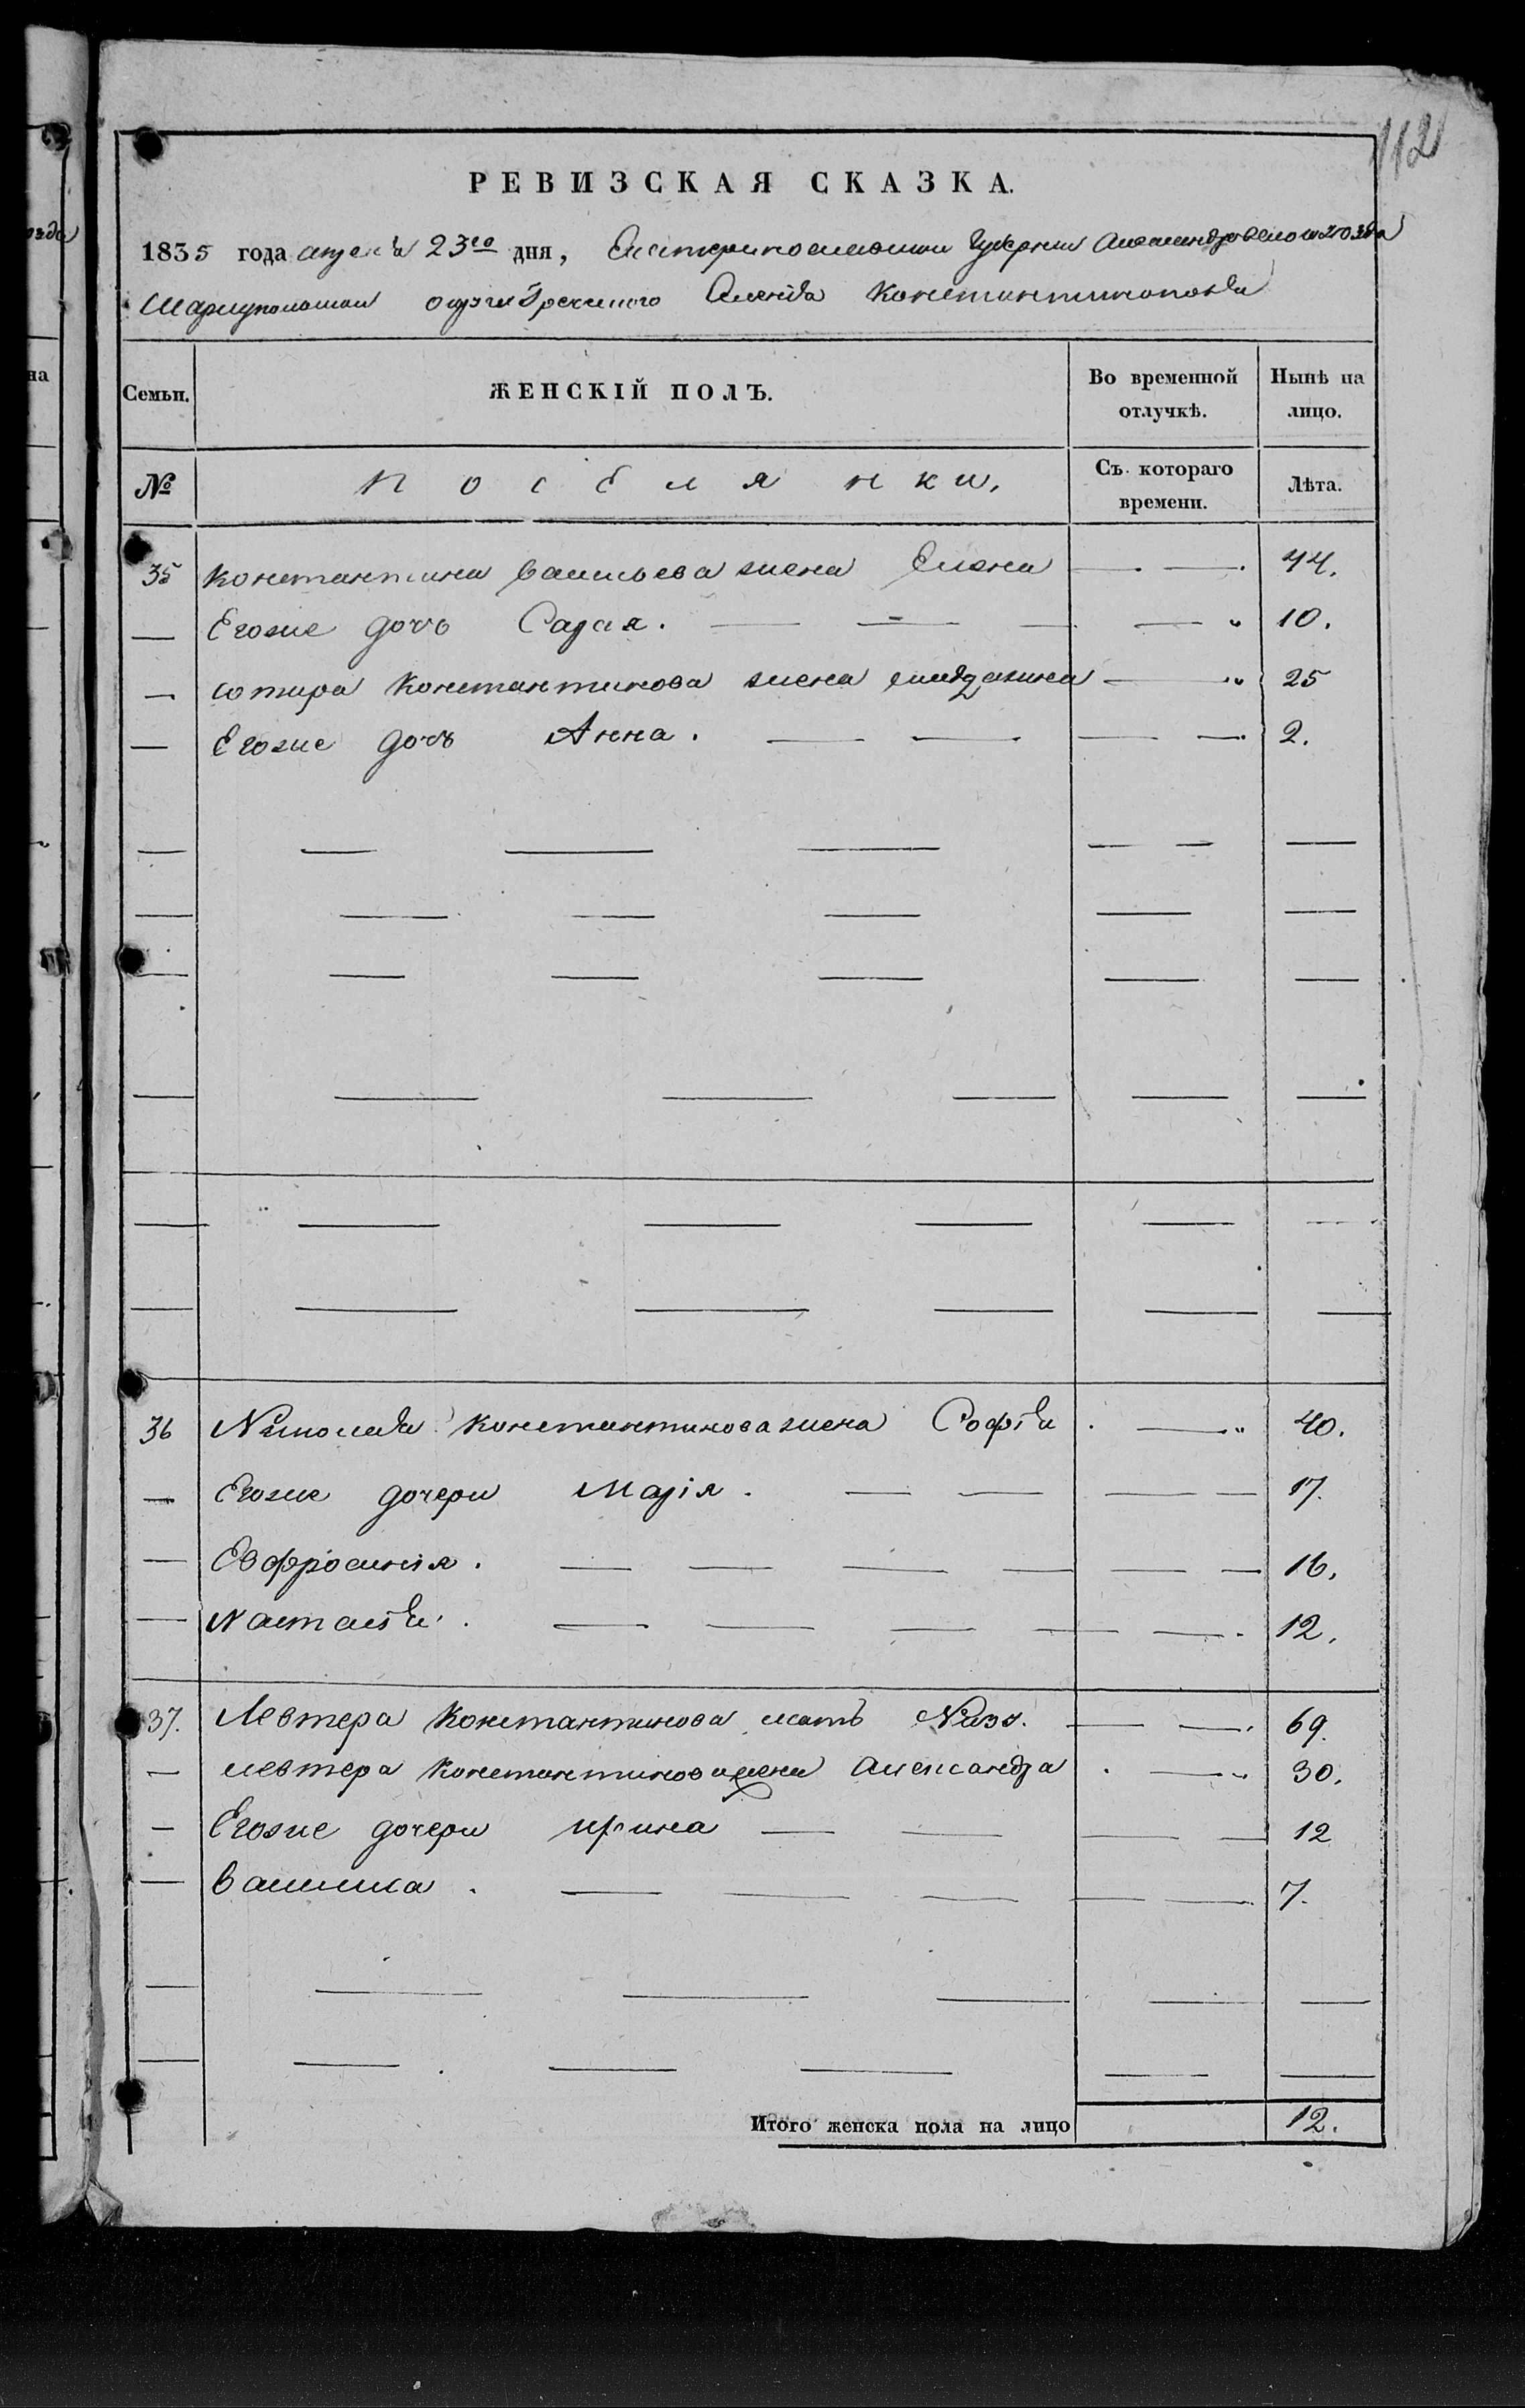 112
РЕВИЗСКАЯ СКАЗКА.
1835 года апреля 23го дня, Екатеринославской Губернии Александровского уезда
Мариупольской округи Греческого Селения Константинополя
Семьи. ЖЕНСКІЙ ПОЛЪ. Во временной отлучкѣ. Нынѣ на лицо.
№ Поселянки. Съ котораго времени. Лѣта.
35 Константина Васильева жена Елена 44.
Егоже дочь Сарая. 10.
Сотира Константинова жена 25
Егоже дочь Анна. 2.
36 Николая Константинова жена Софія 40.
Егоже дочери Марія. 17.
Евфросинія. 16.
Настасія. 12.
37. Левтера Константинова мать 69.
Левтера Константинова жена Александра 30.
Егоже дочери Ирина 12
Василиса. 7.
Итого женска пола на лицо 12.